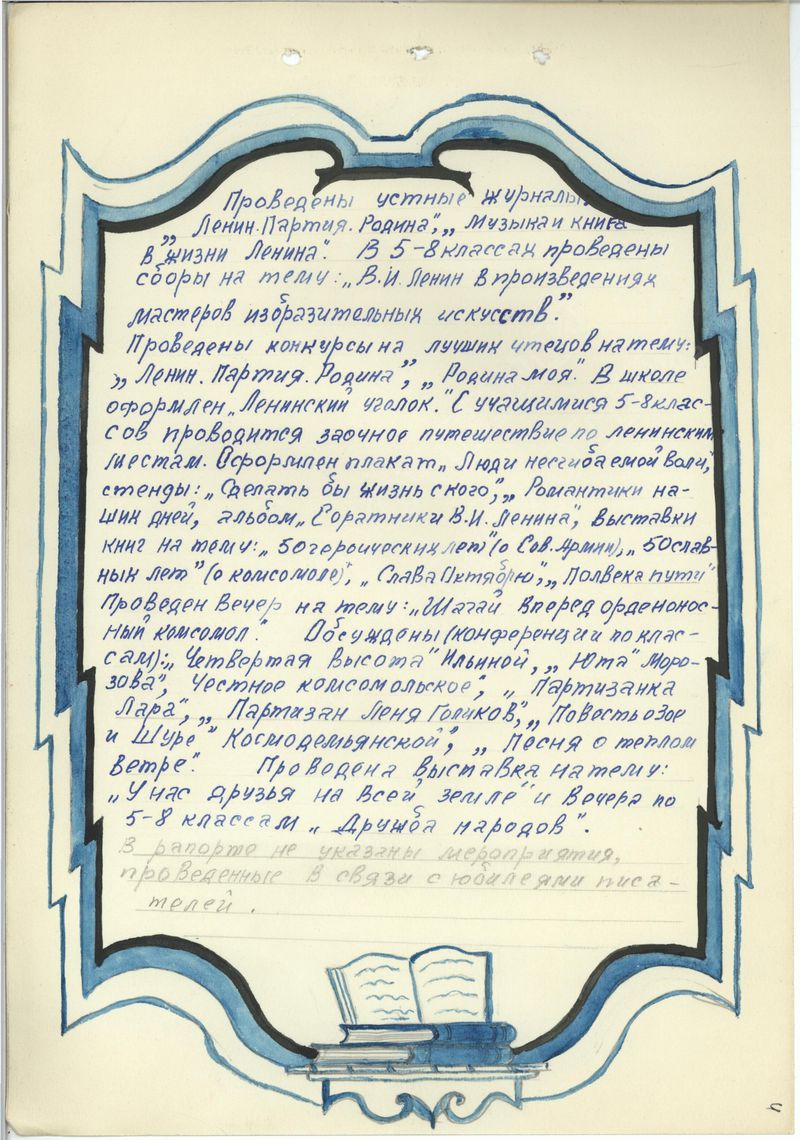 Проведены устные журналы:
„Ленин. Партия. Родина", „Музыка и книга
в жизни Ленина". В 5-8 классах проведены
сборы на тему: „В.И. Ленин в произведениях
мастеров изобразительных искусств."
Проведены конкурсы на лучших чтецов на тему:
„Ленин. Партия. Родина", „Родина моя". В школе
оформлен „Ленинский уголок." С учащимися 5-8 клас-
сов проводится заочное путешествие по ленинским
местам. Оформлен плакат „Люди несгибаемой воли",
стенды: „Сделать бы жизнь с кого", „Романтики на-
ших дней, альбом „Соратники В.И. Ленина", выставки
книг на тему: „50 героических лет" (о Сов. Армии), „50 слав-
ных лет" (о комсомоле), „Слава Октябрю", „Полвека пути"
Проведен вечер на тему: „Шагай вперед орденонос-
ный комсомол." Обсуждены (конференции по клас-
сам): „Четвертая высота" Ильиной, „Юта" Моро-
зова", Честное комсомольское", „Партизанка
Лара", „Партизан Леня Голиков", „Повесть о Зое
и Шуре" Космодемьянской", „Песня о теплом
ветре". Проведена выставка на тему:
„У нас друзья на всей земле" и вечера по
5-8 классам „Дружба народов".
В рапорте не указаны мероприятия,
проведенные в связи с юбилеями писа-
телей.
4